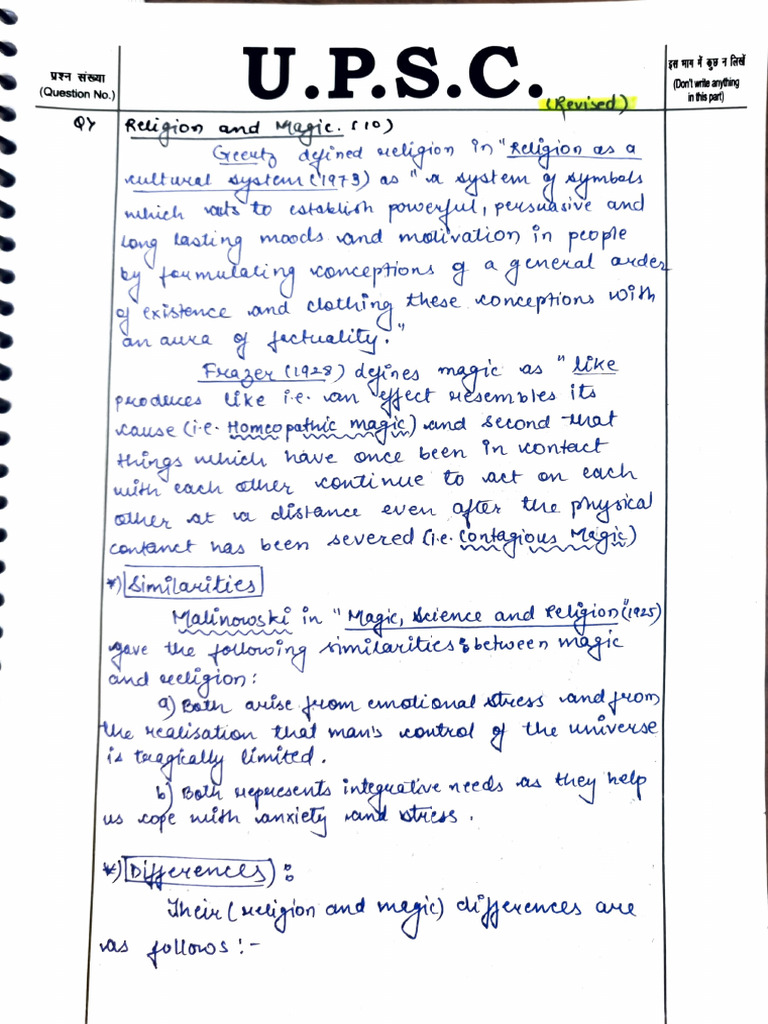 प्रश्न संख्या
(Question No.)
U.P.S.C.
(Revised)
इस भाग में कुछ न लिखें
(Don't write anything
in this part)
Religion and Magic. (10)
Geertz defined religion in "Religion as a
cultural system (1973) as "a system of symbols
which acts to establish powerful, persuasive and
long lasting moods and motivation in people
by formulating conceptions of a general order
of existence and clothing these conceptions with
an aura of factuality."
Frazer (1928) defines magic as "like
produces like i.e. an effect resembles its
cause (i.e. Homeopathic magic) and second that
things which have once been in contact
with each other continue to act on each
other at a distance even after the physical
contanct has been severed (i.e. Contagious Magic)
*) Similarities
Malinowski in "Magic, Science and Religion" (1925)
gave the following similarities: between magic
and religion:
a) Both arise from emotional stress and from
the realisation that man's control of the universe
is tragically limited.
b) Both represents integrative needs as they help
us cope with anxiety and stress.
*) Differences:
Their (religion and magic) differences are
as follows:-